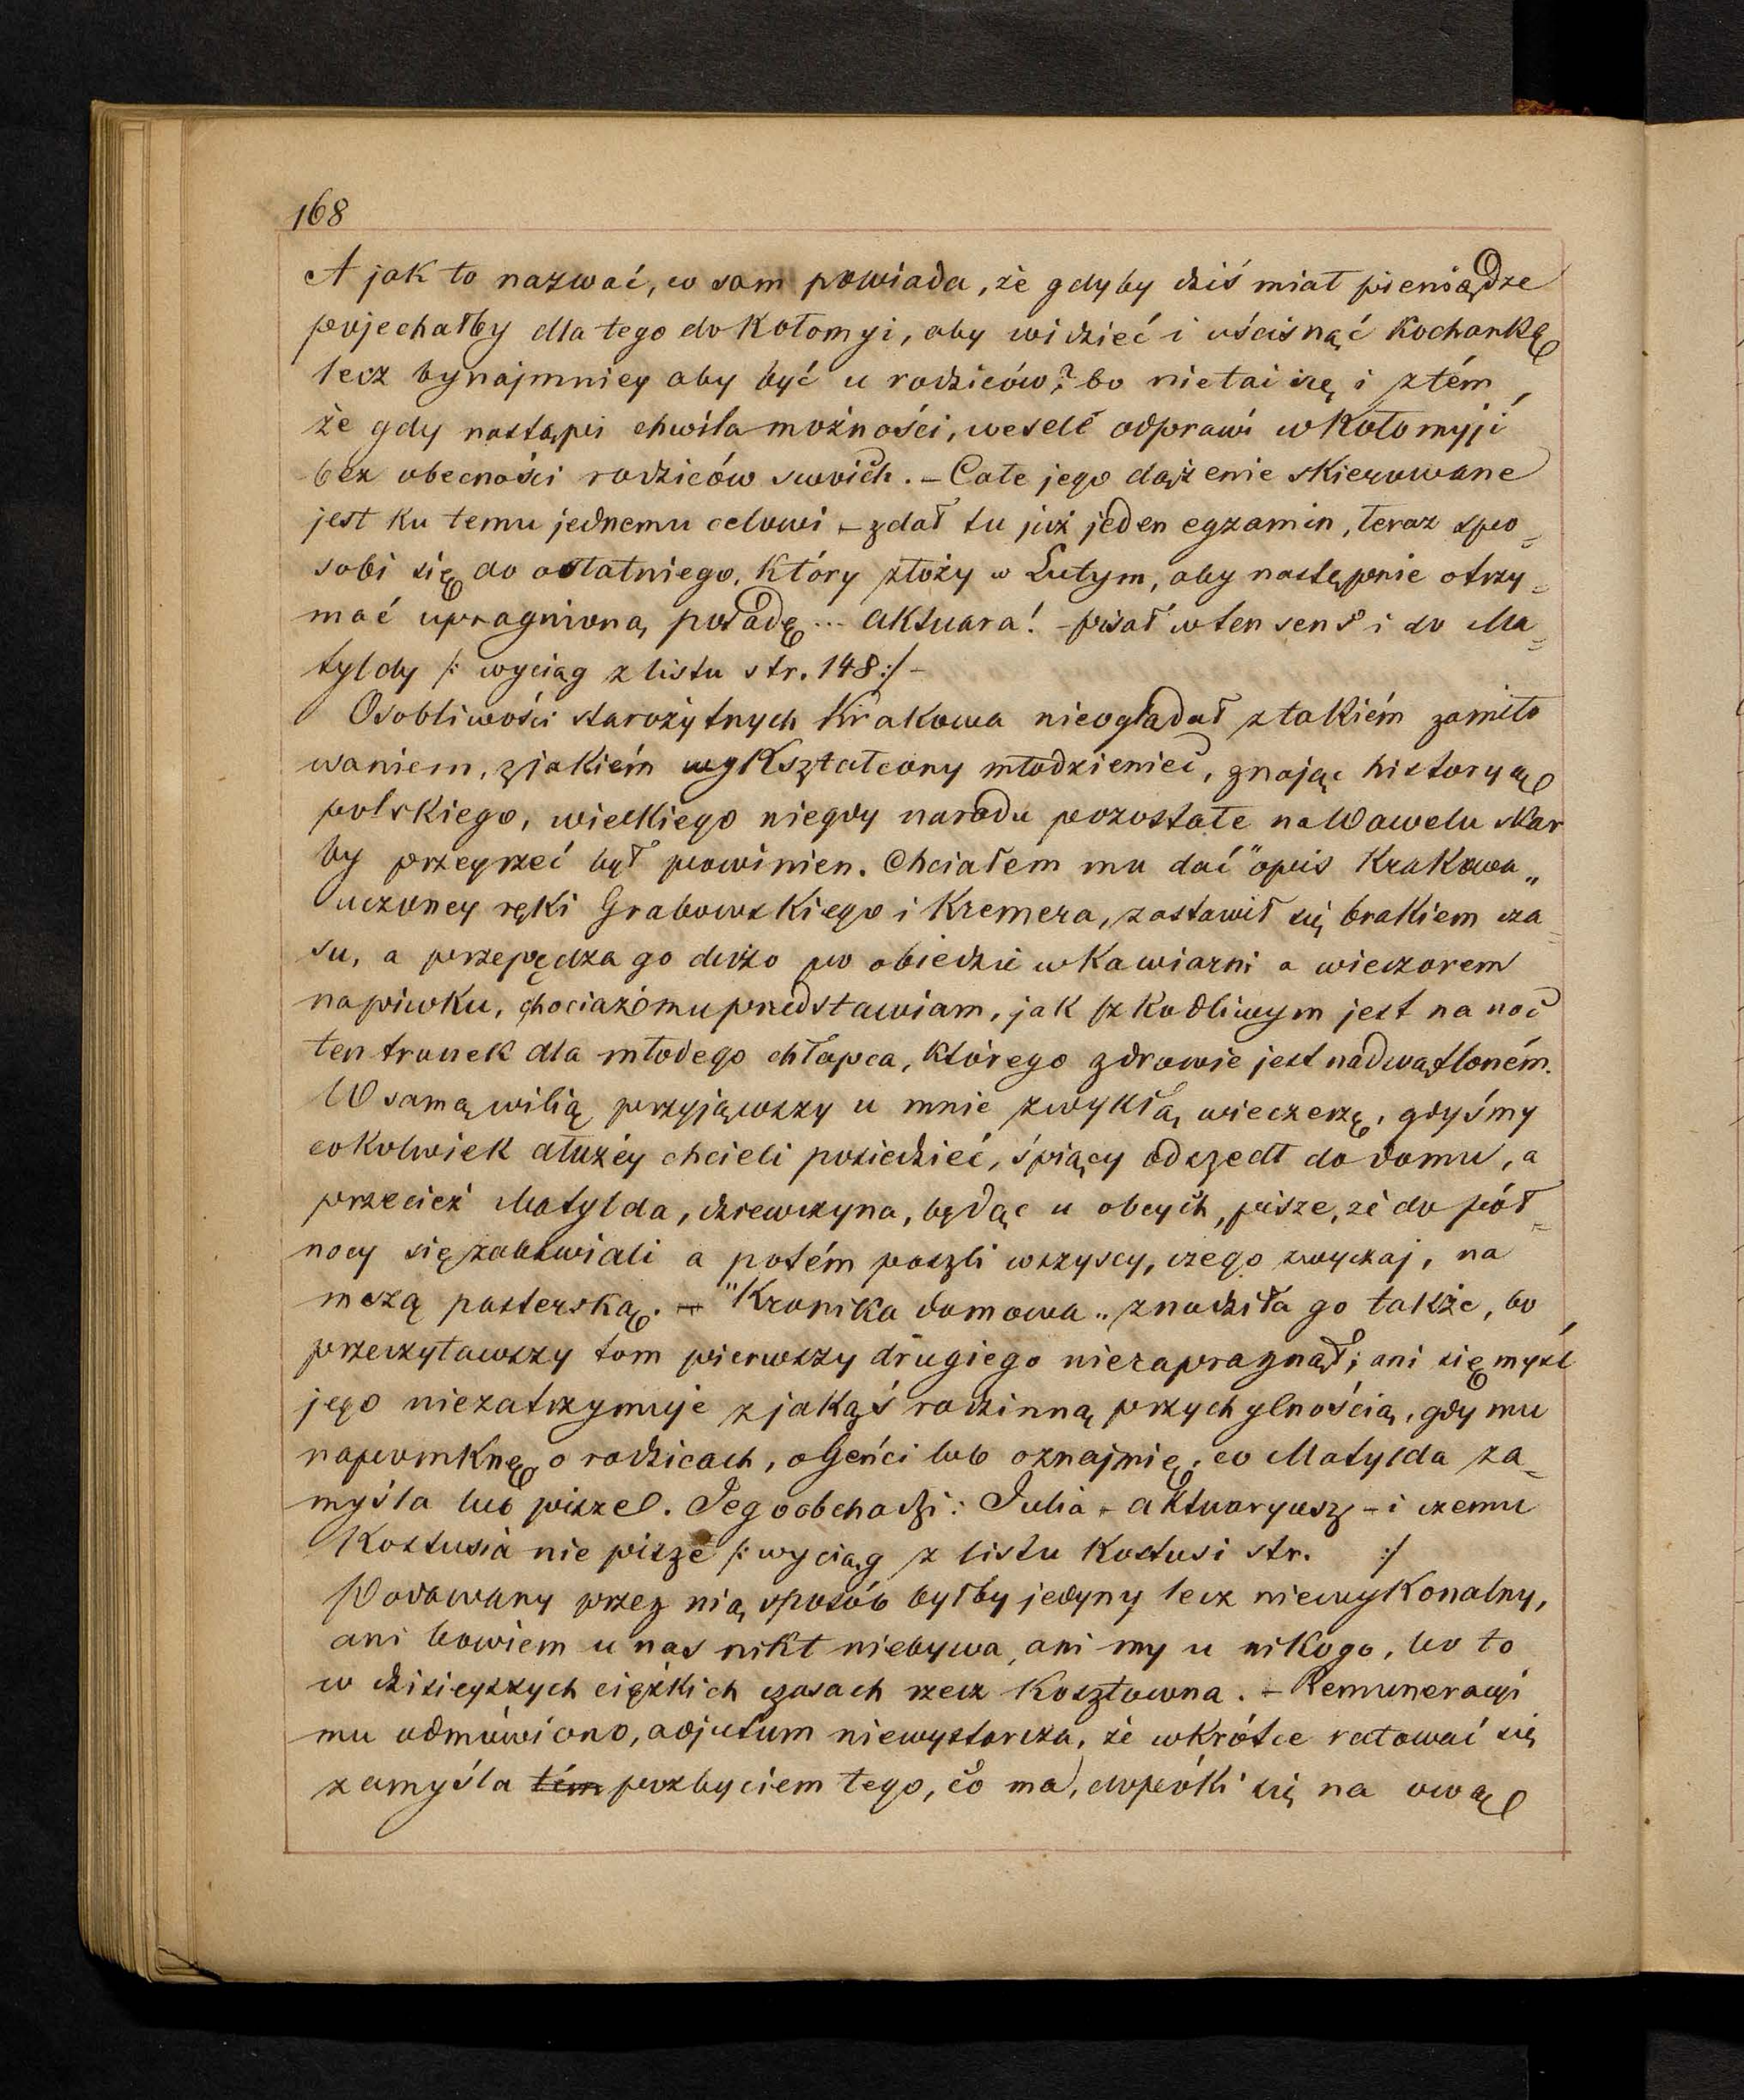 168
A jak to nazwać, co sam powiada, że gdyby dziś miał pieniądze
pojechałby dla tego do Kołomyi, aby widzieć i uścisnąć kochankę
lecz bynajmniey aby być u rodziców? bo nietai się i ztém,
że gdy nastąpi chwila możności, wesele odprawi w Kołomyji
bez obecności rodziców swoich. – Całe jego dążenie skierowane
jest ku temu jednemu celowi – zdał tu już jeden egzamin, teraz spo=
sobi się do ostatniego, który złoży w Lutym, aby następnie otrzy=
mać upragnioną posadę ... aktuara! – pisał w ten sens i do Ma=
tyldy /: wyciąg z listu str. 148 :/ –
Osobliwości starożytnych Krakowa nieoglądał z takiém zamiło
waniem, z jakiém wykształcony młodzieniec, znając historyą
polskiego, wielkiego niegdy narodu pozostałe na Wawelu skar
by przeyrzeć był powinien. Chciałem mu dać "opis Krakowa„
uczoney ręki Grabowskiego i Kremera, zastawił się brakiem cza=
su, a przepędza go dużo po obiedzie w kawiarni a wieczorem
na piwku, chociaż mu przedstawiam, jak szkodliwym jest na noc
ten trunek dla młodego chłopca, którego zdrowie jest nadwątloném.
W samą wilią przyjąwszy u mnie zwykłą wieczerzę, gdyśmy
cokolwiek dłużéy chcieli posiedzieć, śpiący odszedł do domu, a
przecież Matylda, dziewczyna, będąc u obcych, pisze, że do pół=
nocy się zabawiali a potém poszli wszyscy, czego zwyczaj, na
mszą pasterską. – "Kronika domowa„ znudziła go także, bo
przeczytawszy tom pierwszy drugiego niezapragnął; ani się myśl
jego niezatrzymuje z jakąś rodzinną przychylnością, gdy mu
napomknę o rodzicach, o Geńci lub oznajmię, co Matylda za=
myśla lub pisze. Jego obchodzi: Julia – aktuaryusz – i czemu
Kostusia nie pisze /: wyciąg z listu Kostusi str. :/
Podawany przez nią sposób byłby jedyny lecz niewykonalny,
ani bowiem u nas nikt niebywa, ani my u nikogo, bo to
w dzisieyszych ciężkich czasach rzecz kosztowna. – Remuneracyi
mu odmówiono, adjutum niewystarcza, że wkrótce ratować się
zamyśla tém pozbyciem tego, co ma, dopóki się na ową